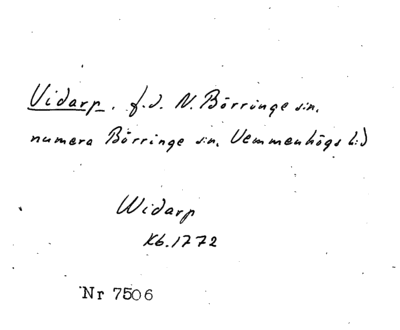 Vidarp. f.d. N. Börringe sn.
numera Börringe sn. Vemmenhögs hd
Widarp
Kb. 1772
Nr 7506